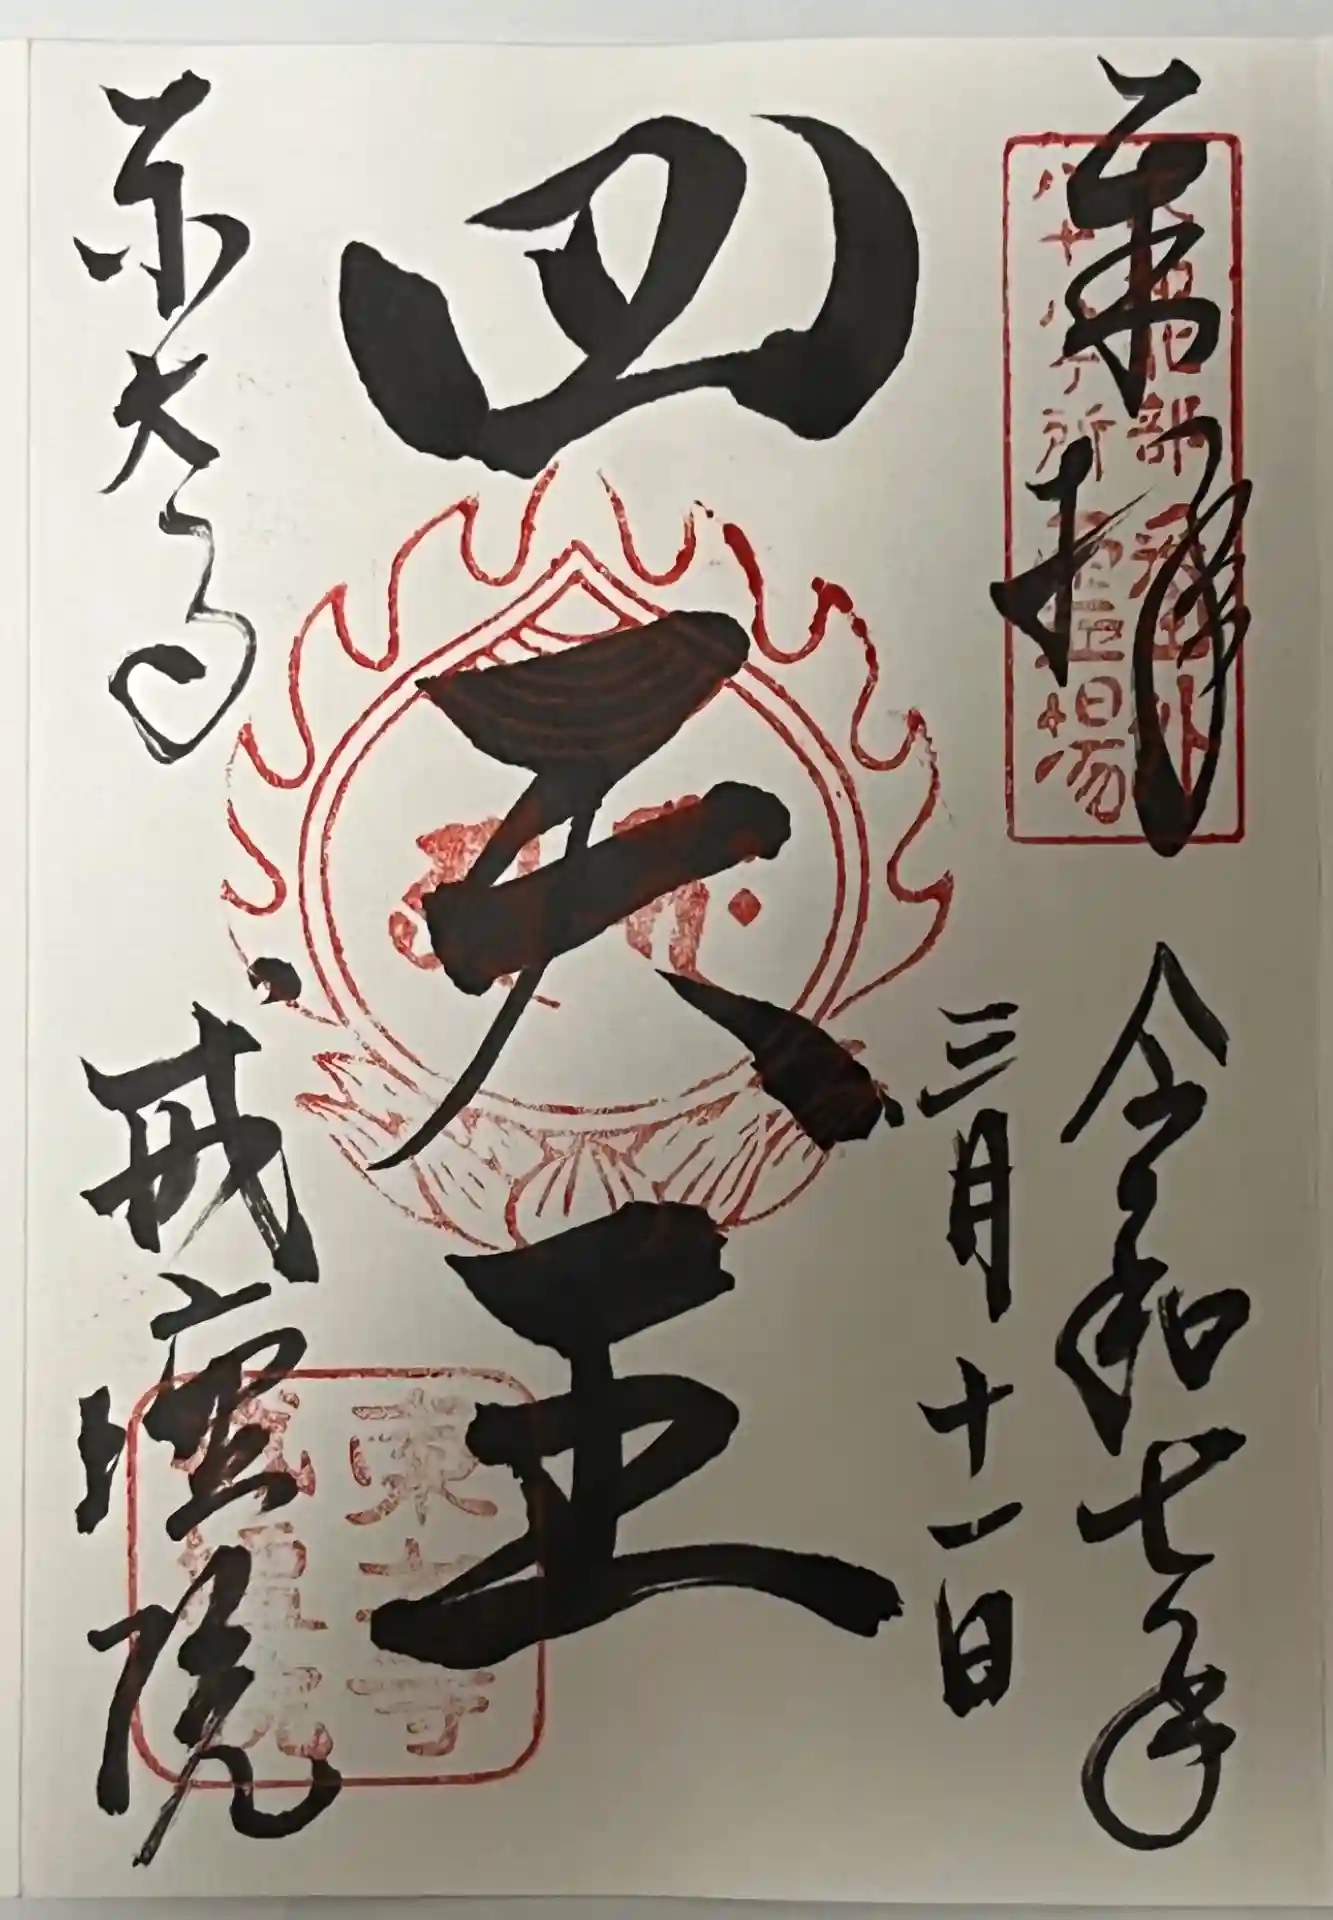 奉拝
令和七年
三月十一日
四天王
東大寺
戒壇院
八十八ヶ所
霊場
東大寺
戒壇院